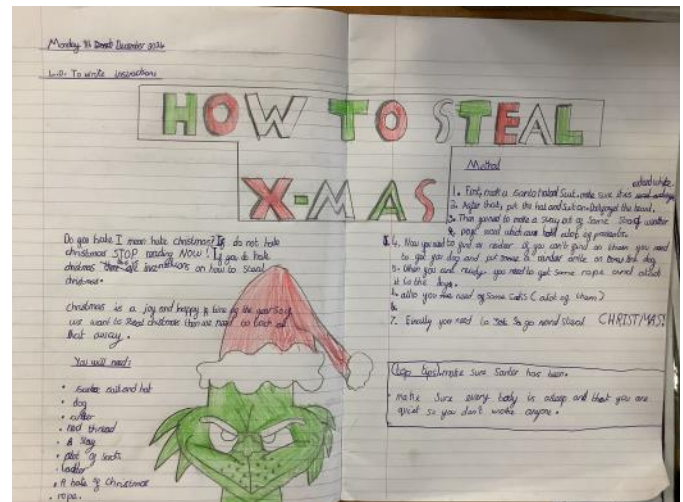 Monday 9th December 2024
L.O. To write instructions
HOW TO STEAL
X-MAS
Do you hate I mean hate christmas? If do not hate
christmas STOP reading NOW! If you do hate
christmas are on how to steal
christmas.
christmas is a joy and happy time of the year So if
we want to steal christmas then we need to back
that away.
You will need:
• suit and hat
• dog
• red thread
• A slay
• alot of sacks
• ladder
• A hate of Christmas
• rope.
Method
red and white
1. First, make a Suit. make sure it is
2. After that, put the hat and Suit on. Don't forget the beard.
3. Then you need to make a slay out of some wood
wood which can hold alot of presents.
4. Now you need to find a if you can't find on then you need
to get you dog and put some on the dog.
5. When you are ready you need to get some rope and attach
it to the dog.
6. also you need some Sacks (alot of them)
7. Finally you need to go and steal CHRISTMAS!
Top tips! make sure has been.
• make sure every body is asleep and that you are
quiet so you don't wake anyone.